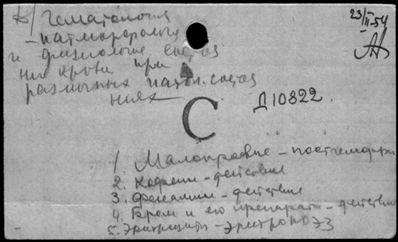 К/ гематология
- патморфология
и физиология состоя
ния крови при
различных патол. состоя
ниях
23/II-54
С
Д10822.
1. Малокровие - постгеморраг
2. Кофеин - действие
3. Фенамин - действие
4. Бром и его препарат - действие
5. Эритроциты - эритропоэз